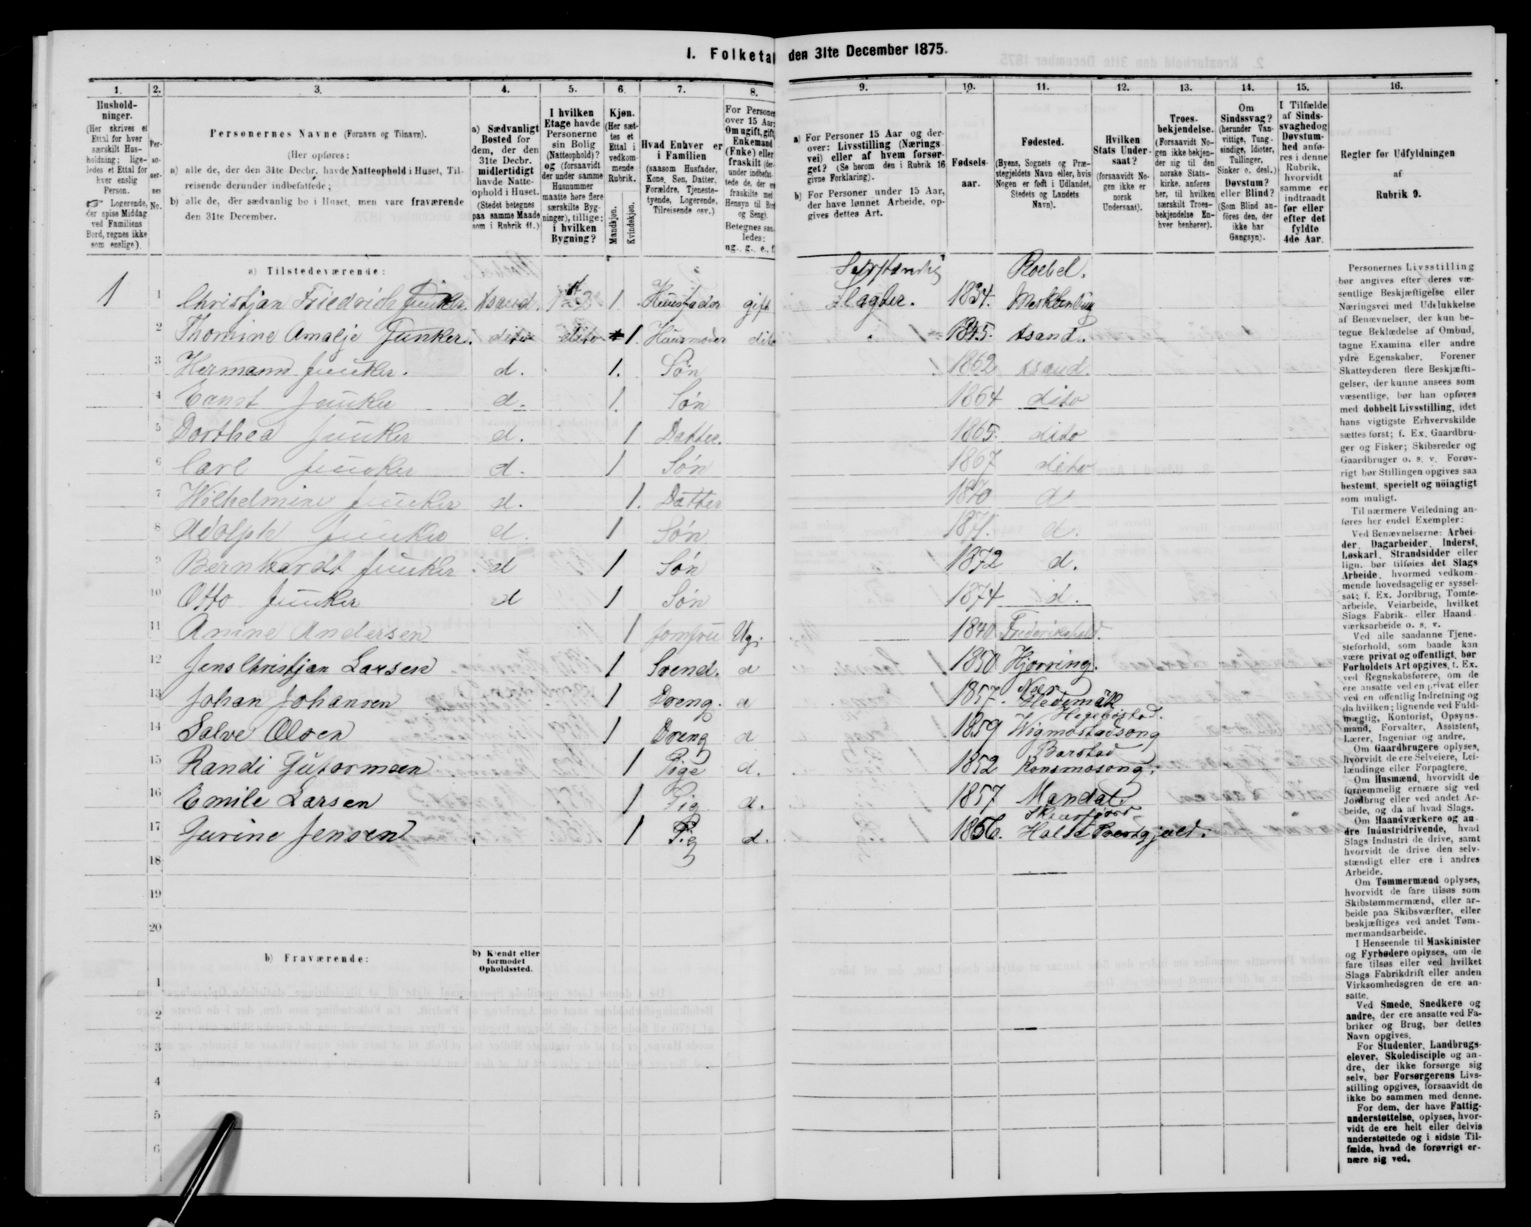 I. Folketal den 31te December 1875.
1. 2. 3. 4. 5. 6. 7. 8. 9. 10. 11. 12. 13. 14. 15. 16.
Hushold-
ninger.
(Her skrives et
Ettal for hver
særskilt Hus-
holdning; lige-
ledes et Ettal for
hver enslig
Person.
Logerende,
der spise Middag
ved Familiens
Bord, regnes ikke
som enslige).
Personernes Navne (Fornavn og Tilnavn).
(Her opføres:
a) alle de, der den 31te Decbr. havde Natteophold i Huset, Til-
reisende derunder indbefattede;
b) alle de, der sædvanlig bo i Huset, men vare fraværende
den 31te December.
a) Sædvanligt
Bosted for
dem, der den
31te Decbr.
midlertidigt
havde Natte-
ophold i Huset.
(Stedet betegnes
paa samme Maade
som i Rubrik 11.)
I hvilken
Etage havde
Personerne
sin Bolig
(Natteophold)?
og (forsaavidt
der under samme
Husnummer
maatte høre flere
særskilte Byg-
ninger), tillige:
i hvilken
Bygning?
Kjøn.
(Her sæt-
tes et
Ettal i
vedkom-
mende
Rubrik.
Mandkjøn.
Kvindekjøn.
Hvad Enhver er
i Familien
(saasom Husfader,
Kone, Søn, Datter,
Forældre, Tjeneste-
tyende, Logerende,
Tilreisende osv.)
For Personer
over 15 Aar:
Om ugift, gift,
Enkemand
(Enke) eller
fraskilt
a) For Personer 15 Aar og der-
over: Livsstilling (Nærings-
vei) eller af hvem forsør-
get? (Se herom den i Rubrik 16
givne Forklaring).
b) For Personer under 15 Aar,
der have lønnet Arbeide, op-
gives dettes Art.
Fødsels-
aar.
Fødested.
(Byens, Sognets og Præ-
stegjeldets Navn eller, hvis
Nogen er født i Udlandet,
Stedets og Landets
Navn).
Hvilken
Stats Under-
saat?
(forsaavidt No-
gen ikke er
norsk
Undersaat).
Troes-
bekjendelse.
(Forsaavidt No-
gen ikke bekjen-
der sig til den
norske Stats-
kirke, anføres
her, til hvilken
særskilt Troes-
bekjendelse En-
hver henhører).
Om
Sindssvag?
(herunder Van-
vittige, Tung-
sindige, Idioter,
Tullinger,
Sinker o. desl.)
Døvstum?
eller Blind?
(Som Blind an-
føres den, der
ikke har
Gangsyn).
I Tilfælde
af Sinds-
svaghed og
Døvstum-
hed anfø-
res i denne
Rubrik,
hvorvidt
samme er
indtraadt
før eller
efter det
fyldte
4de Aar.
Regler for Udfyldningen
af
Rubrik 9.
a) Tilstedeværende:
1 1 Christjan Friedrich Junker. Husfader gift Selvstændig Slagter. 1834. Roebel. Meklenburg
2 Thomine Amalje Junker. dito dito 1. Husmoder dito 1845.
3 Hermann Junker. d. 1. Søn 1862
4 Ernst Junker d. 1. Søn 1864 dito
5 Dorthea Junker d. 1 Datter. 1865. dito
6 Carl Junker d. 1 Søn 1867 dito
7 Wilhelmine Junker d. 1. Datter 1870 d.
8 Adolph Junker d. 1 Søn 1871. d.
9 Bernhardt Junker. d 1 Søn 1872 d.
10 Otto Junker d 1 Søn 1874 d.
11 Amine Andersen 1 Jomfru Ug. 1840 Frederikshald.
12 Jens Christjan Larsen 1 Svend. d 1850 Hjørring.
13 Johan Johansen 1 Dreng. d 1857. Hedemark
14 Salve Olsen 1 Dreng d 1859
15 Randi Gutormsen 1 Pige d. 1852
16 Emile Larsen 1 Pig d. 1857 Mandal
17 Jurine Jensen 1 Pig d. 1856.
18
19
20
b) Fraværende:
b) Kjendt eller
formodet
Opholdssted.
1
2
3
4
5
6
Personernes Livsstilling
bør angives efter deres væ-
sentlige Beskjæftigelse eller
Næringsvei med Udelukkelse
af Benævnelser, der kun be-
tegne Beklædelse af Ombud,
tagne Examina eller andre
ydre Egenskaber. Forener
Skatteyderen flere Beskjæfti-
gelser, der kunne ansees som
væsentlige, bør han opføres
med dobbelt Livsstilling, idet
hans vigtigste Erhvervskilde
sættes først; f. Ex. Gaardbru-
ger og Fisker; Skibsreder og
Gaardbruger o. s. v. Forøv-
rigt bør Stillingen opgives saa
bestemt, specielt og nøiagtigt
som muligt.
Til nærmere Veiledning an-
føres her endel Exempler:
Ved Benævnelserne: Arbei-
der, Dagarbeider, Inderst,
Løskarl, Strandsidder eller
lign. bør tilføies det Slags
Arbeide, hvormed vedkom-
mende hovedsagelig er syssel-
sat; f. Ex. Jordbrug, Tomte-
arbeide, Veiarbeide, hvilket
Slags Fabrik- eller Haand-
værksarbeide o. s. v.
Ved alle saadanne Tjene-
steforhold, som baade kan
være privat og offentligt, bør
Forholdets Art opgives, t. Ex.
ved Regnskabsførere, om de
ere ansatte ved en privat eller
ved en offentlig Indretning og
da hvilken; lignende ved Fuld-
mægtig, Kontorist, Opsyns-
mand, Forvalter, Assistent,
Lærer, Ingeniør og andre.
Om Gaardbrugere oplyses,
hvorvidt de ere Selveiere, Lei-
lændinge eller Forpagtere.
Om Husmænd, hvorvidt de
fornemmelig ernære sig ved
Jordbrug eller ved andet Ar-
beide, og da af hvad Slags.
Om Haandværkere og an-
dre Industridrivende, hvad
Slags Industri de drive, samt
hvorvidt de drive den selv-
stændigt eller ere i andres
Arbeide.
Om Tømmermænd oplyses,
hvorvidt de fare tilsøs som
Skibstømmermænd, eller ar-
beide paa Skibsværfter, eller
beskjæftiges ved andet Tøm-
mermandsarbeide.
I Henseende til Maskinister
og Fyrbødere oplyses, om de
fare tilsøs eller ved hvilket
Slags Fabrikdrift eller anden
Virksomhedsgren de ere an-
satte.
Ved Smede, Snedkere og
andre, der ere ansatte ved Fa-
briker og Brug, bør dettes
Navn opgives.
For Studenter, Landbrugs-
elever, Skoledisciple og an-
dre, der ikke forsørge sig
selv, bør Forsørgerens Livs-
stilling opgives, forsaavidt de
ikke bo sammen med denne.
For dem, der have Fattig-
understøttelse, oplyses, hvor-
vidt de ere helt eller delvis
understøttede og i sidste Til-
fælde, hvad de forøvrigt er-
nære sig ved.